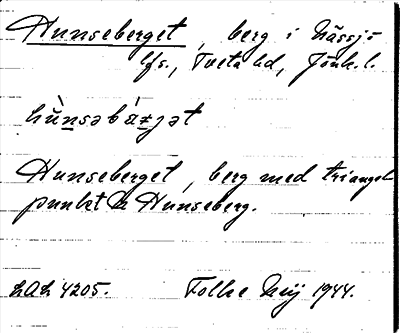 Hunseberget, berg i Nässjö
lfs., Tveta hd, Jönk. l.
Hunseberget, berg med triangel
punkt Hunseberg.
LAL 4205. Folke Neij 1944.